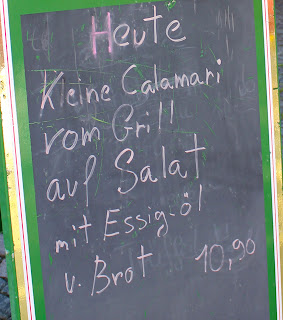 Heute
Kleine Calamari
vom Grill
auf Salat
mit Essig-öl
v. Brot 10,90